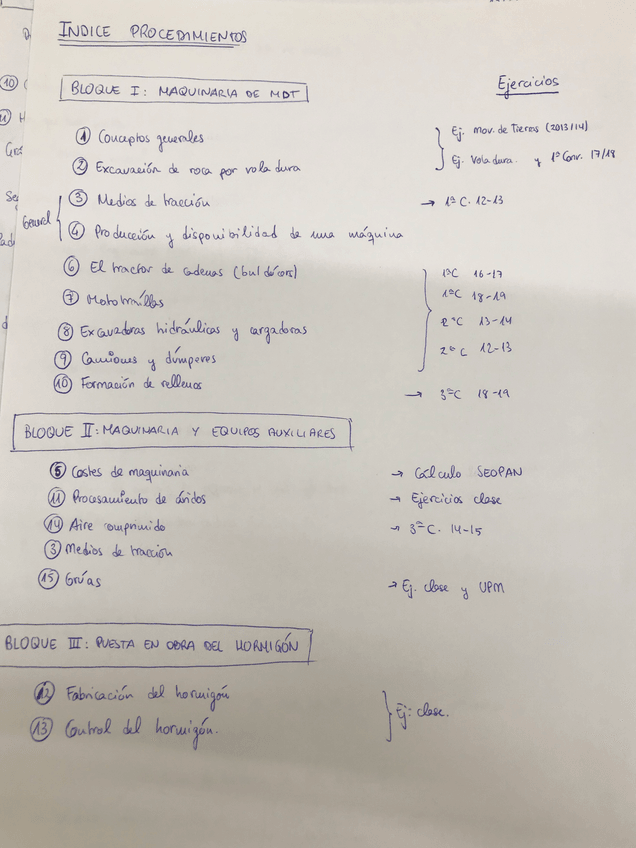 INDICE PROCEDIMIENTOS
BLOQUE I: MAQUINARIA DE MDT
Ejercicios
① Conceptos generales
② Excavación de roca por voladura
Ej. mov. de Tierras (2013/14)
Ej. Voladura. y 1ª Conv. 17/18
General
③ Medios de tracción → 1ª C. 12-13
④ Producción y disponibilidad de una máquina
⑥ El tractor de cadenas (buldócers)
⑦ Mototraíllas
⑧ Excavadoras hidráulicas y cargadoras
⑨ Camiones y dúmperes
1ªC 16-17
1ªC 18-19
2ªC 13-14
2ªC 12-13
⑩ Formación de rellenos → 3ªC 18-19
BLOQUE II: MAQUINARIA Y EQUIPOS AUXILIARES
⑤ Costes de maquinaria → Cálculo SEOPAN
⑪ Procesamiento de áridos → Ejercicios clase
⑭ Aire comprimido → 3ªC. 14-15
③ Medios de tracción
⑮ Grúas → Ej. clase y UPM
BLOQUE III: PUESTA EN OBRA DEL HORMIGÓN
⑫ Fabricación del hormigón
⑬ Control del hormigón.
Ej: clase.